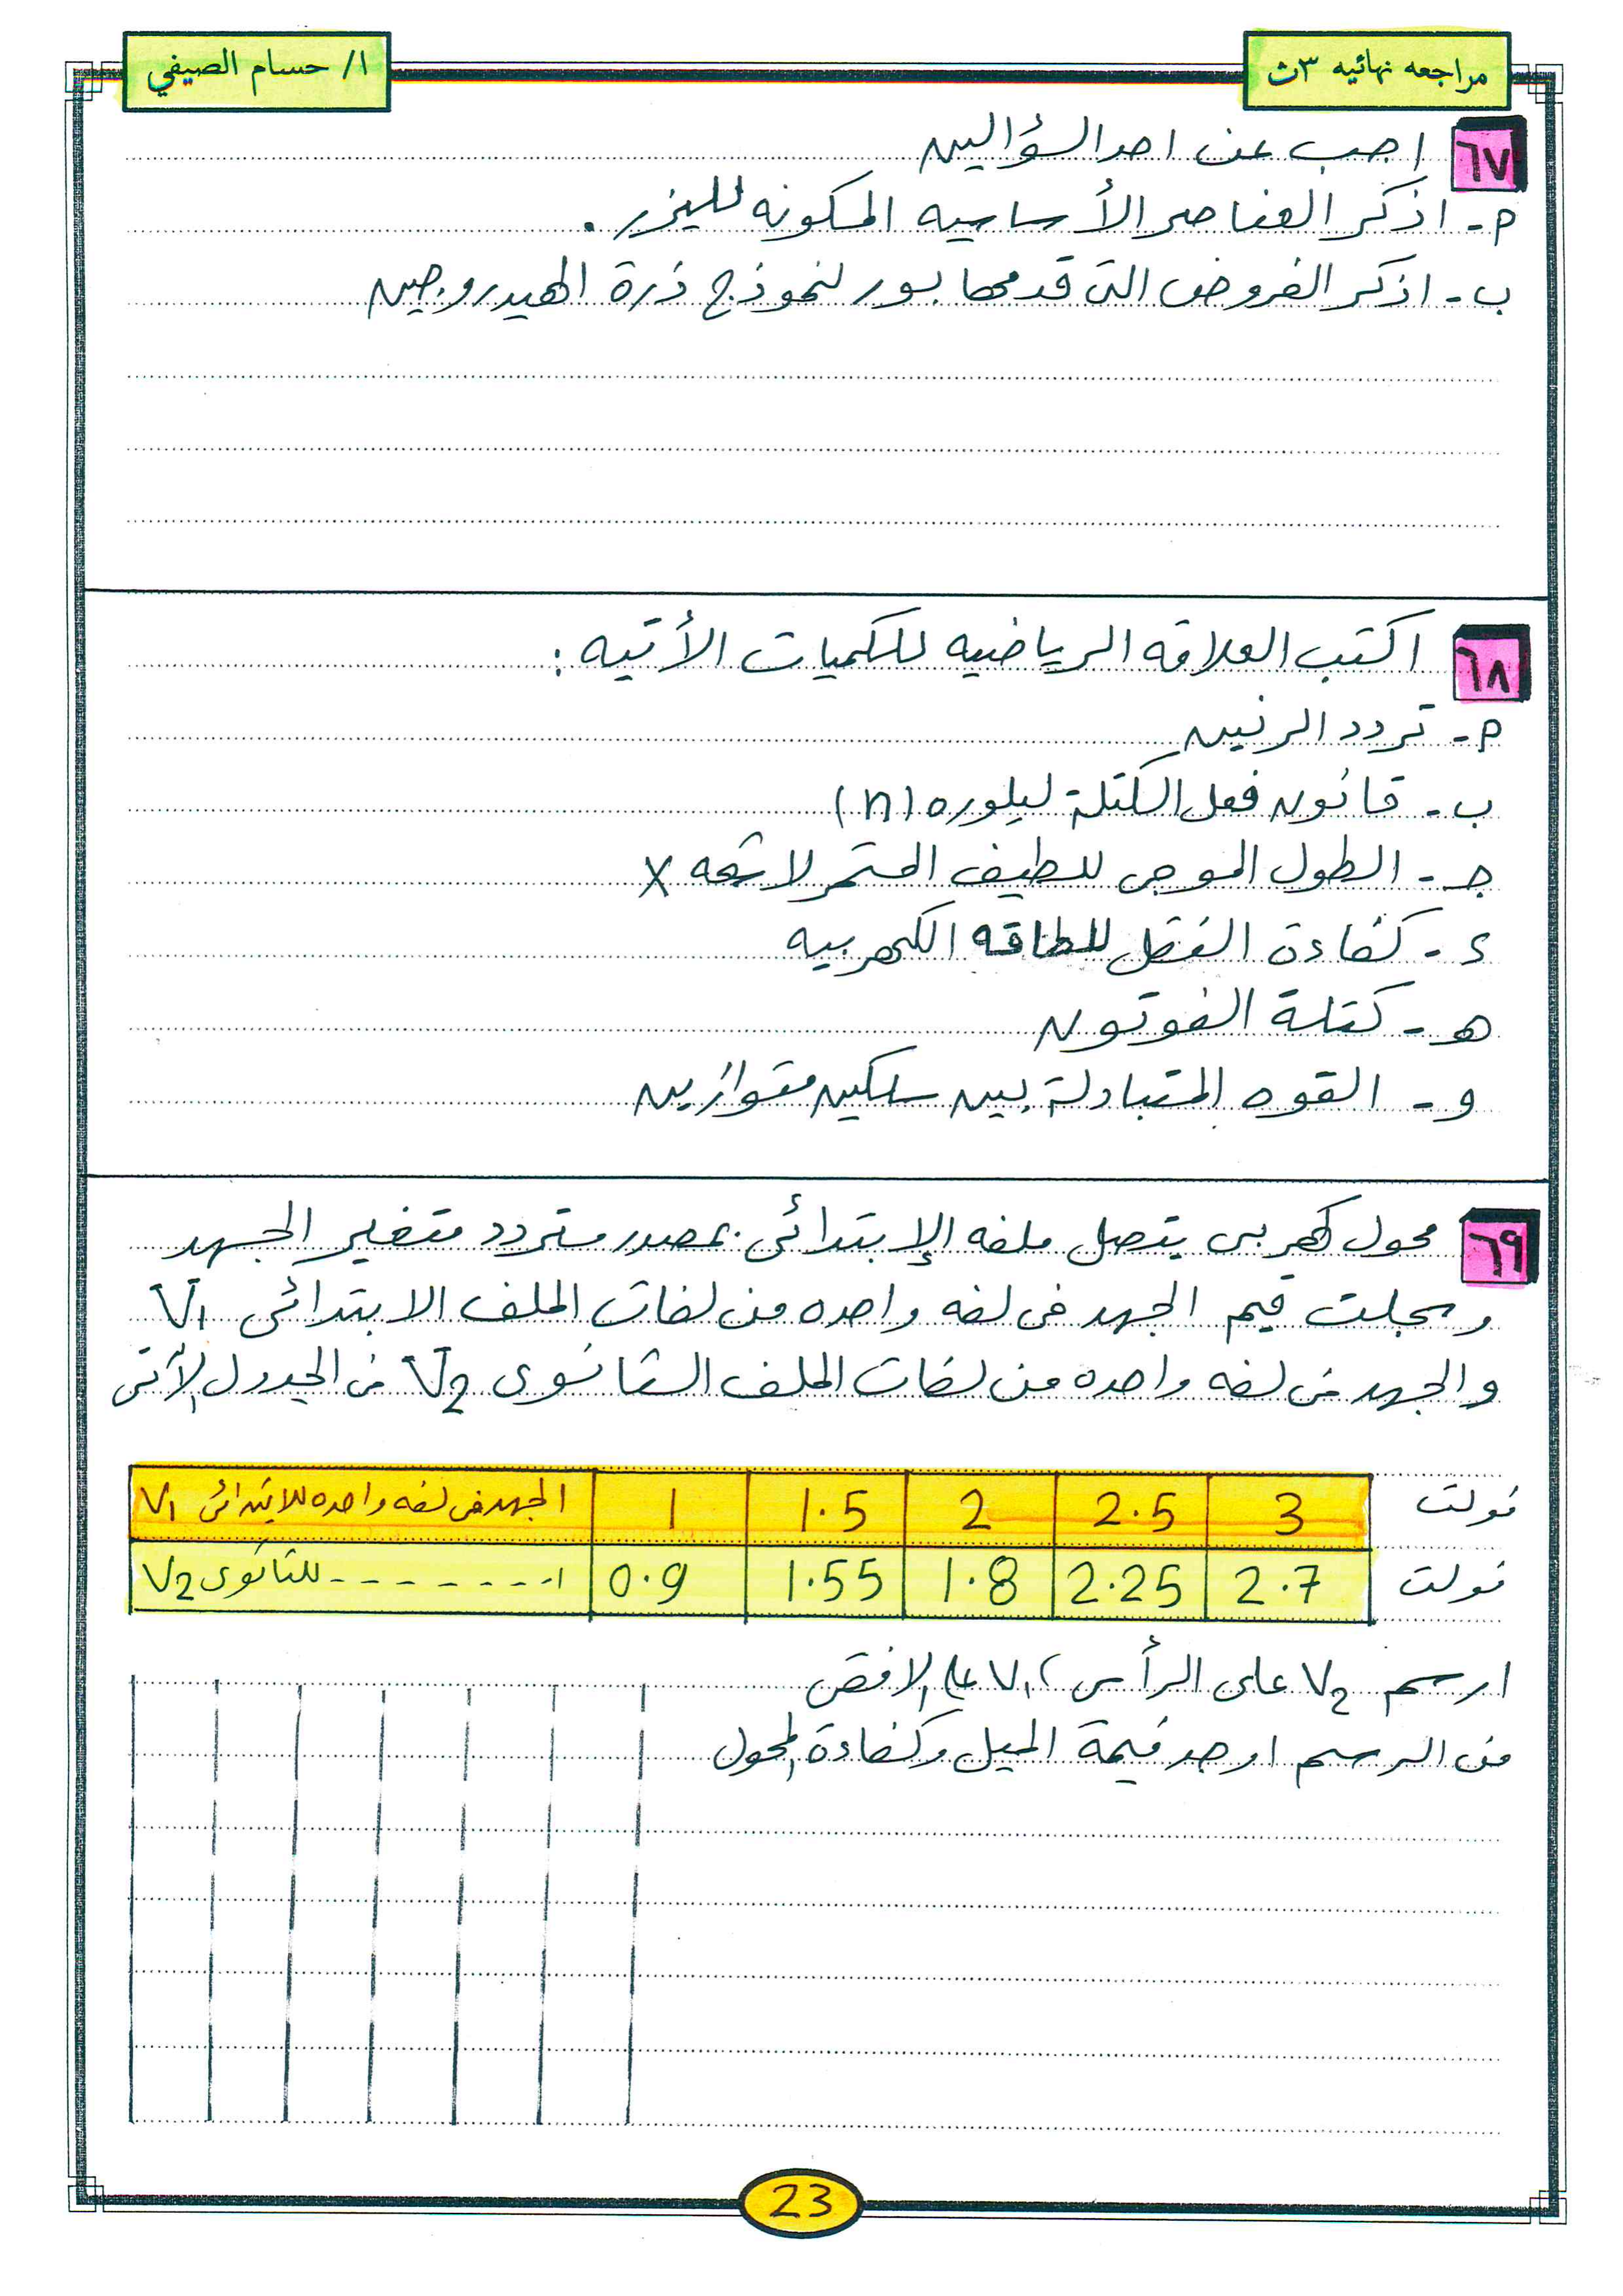 مراجعه نهائيه ٣ث
ا/ حسام الصيفي
٦٧ اجب عن احد السؤالين
م- اذكر العناصر الأساسيه المكونه لليزر.
ب- اذكر الفروض التى قدمها بور لنموذج ذرة الهيدروجين
٦٨ اكتب العلاقه الرياضيه للكميات الأتيه :
م- تردد الرنين
ب- قانون فعل الكتلة لبلوره (n)
جـ- الطول الموجى للطيف المستمر لاشعه X
ء- كفاءة النقل للطاقه الكهربيه
هـ- كتلة الفوتون
و- القوه المتبادلة بين سلكين متوازيين
٦٩ محول كهربى يتصل ملفه الإبتدائى بمصدر متردد متغير الجهد
وسجلت قيم الجهد فى لفه واحده من لفات الملف الابتدائى V1
والجهد فى لفه واحده من لفات الملف الثانوى V2 فى الجدول الآتى
الجهد فى لفه واحده للابتدائى V1 1 1.5 2 2.5 3 فولت
للثانوى V2 0.9 1.55 1.8 2.25 2.7 فولت
ارسم V2 على الرأسى، V1 على الافقى
من الرسم اوجد قيمة الميل وكفاءة المحول
23